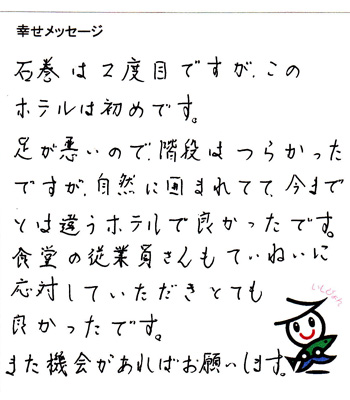 幸せメッセージ
石巻は2度目ですが、この
ホテルは初めてです。
足が悪いので、階段はつらかった
ですが、自然に囲まれてて、今まで
とは違うホテルで良かったです。
食堂の従業員さんもていねいに
応対していただきとても
良かったです。
また機会があればお願いします。